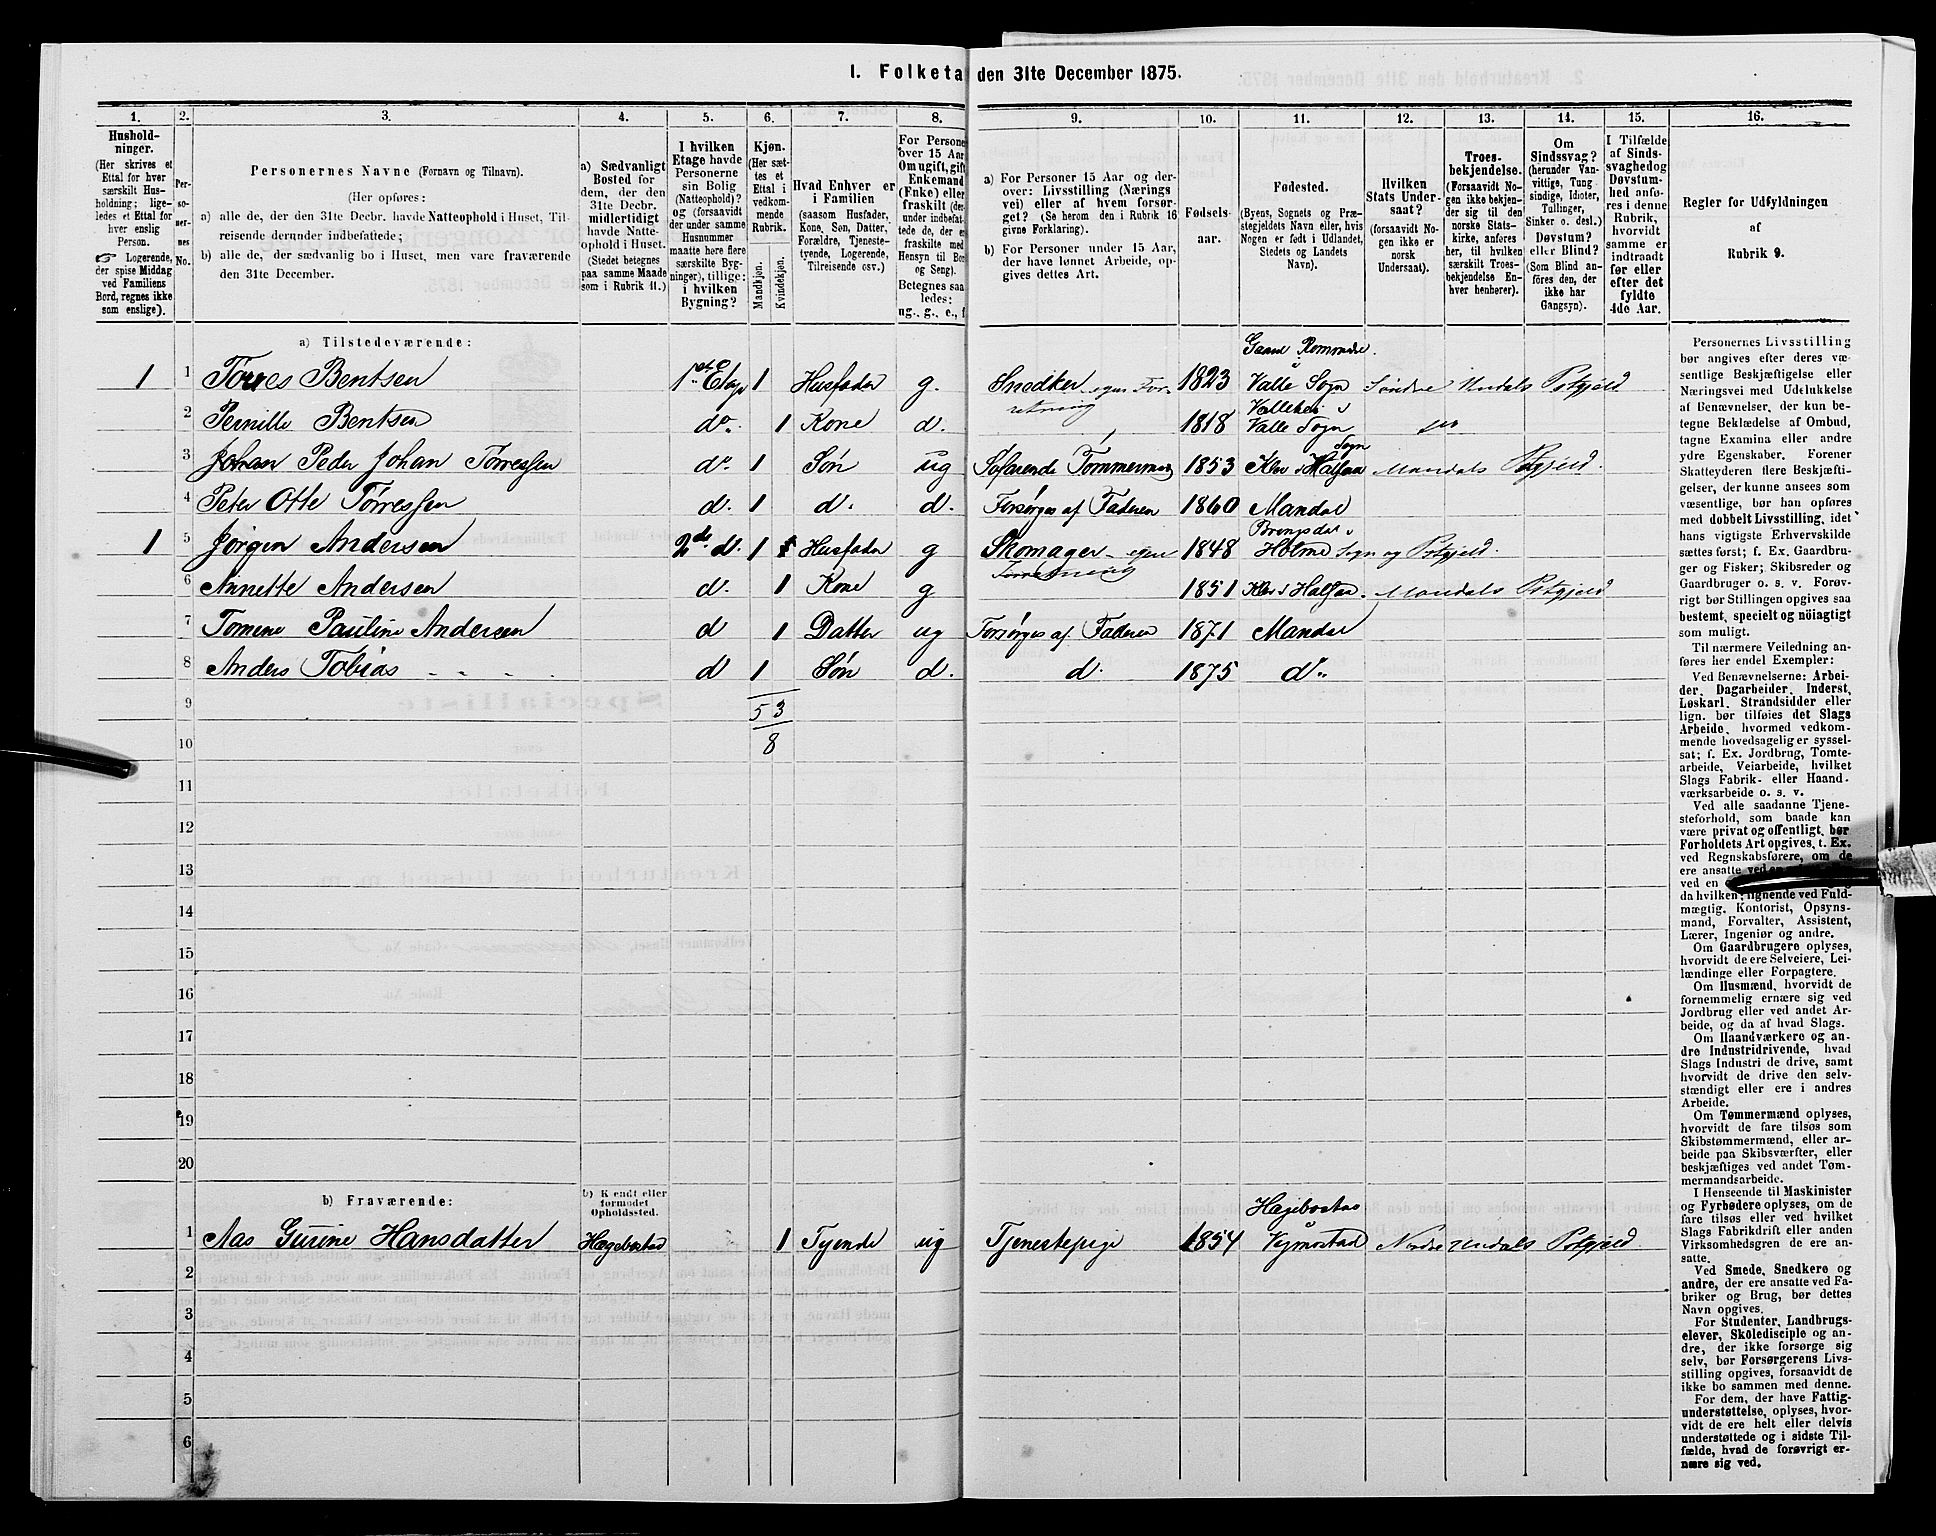 I. Folketa den 31te December 1875.
1. 2. 3. 4. 5. 6. 7. 8. 9. 10. 11. 12. 13. 14. 15. 16.
Hushold-
ninger.
(Her skrives et
Ettal for hver
særskilt Hus-
holdning; lige-
ledes et Ettal for
hver enslig
Person.
☞ Logerende,
der spise Middag
ved Familiens
Bord, regnes ikke
som enslige).
Per-
so-
ner-
nes
No.
Personernes Navne (Fornavn og Tilnavn).
(Her opføres:
a) alle de, der den 31te Decbr. havde Natteophold i Huset, Til-
reisende derunder indbefattede;
b) alle de, der sædvanlig bo i Huset, men vare fraværende
den 31te December.
a) Sædvanligt
Bosted for
dem, der den
31te Decbr.
midlertidigt
havde Natte-
ophold i Huset.
(Stedet betegnes
paa samme Maade
som i Rubrik 11.)
I hvilken
Etage havde
Personerne
sin Bolig
(Natteophold)?
og (forsaavidt
der under samme
Husnummer
maatte høre flere
særskilte Byg-
ninger), tillige:
i hvilken
Bygning?
Kjøn.
(Her sæt-
tes et
Ettal i
vedkom-
mende
Rubrik.
Mandkjøn.
Kvindekjøn.
Hvad Enhver er
i Familien
(saasom Husfader,
Kone, Søn, Datter,
Forældre, Tjeneste-
tyende, Logerende,
Tilreisende osv.)
For Persone
over 15 Aar
Om ugift, gift
Enkemand
(Enke) eller
fraskilt (der-
under indbefat-
tede de, der e
fraskilte med
Hensyn til Bor
og Seng).
Betegnes saa
ledes:
ug., g., e., f
a) For Personer 15 Aar og der-
over: Livsstilling (Nærings
vei) eller af hvem forsør-
get? (Se herom den i Rubrik 16
givne Forklaring).
b) For Personer under 15 Aar,
der have lønnet Arbeide, op-
gives dettes Art.
Fødsels-
aar.
Fødested.
(Byens, Sognets og Præ-
stegjeldets Navn eller, hvis
Nogen er født i Udlandet,
Stedets og Landets
Navn).
Hvilken
Stats Under-
saat?
(forsaavidt No-
gen ikke er
norsk
Undersaat).
Troes-
bekjendelse.
(Forsaavidt No-
gen ikke bekjen-
der sig til den
norske Stats-
kirke, anføres
her, til hvilken
særskilt Troes-
bekjendelse En-
hver henhører).
Om
Sindssvag?
(herunder Van-
vittige, Tung
sindige, Idioter,
Tullinger,
Sinker o. desl.)
Døvstum?
eller Blind?
(Som Blind an-
føres den, der
ikke har
Gangsyn).
I Tilfælde
af Sinds-
svaghed og
Døvstum-
hed anfø-
res i denne
Rubrik,
hvorvidt
samme er
indtraadt
før eller
efter det
fyldte
4de Aar.
Regler for Udfyldningen
af
Rubrik 9.
a) Tilstedeværende:
1 1 Tørres Bentsen 1ste Etage 1 Husfader g. Snedker egen For-retning 1823 Valle Sogn Søndre Undals Pstgjeld
2 Pernille Bentsen do. 1 Kone d. 1818 Valle Sogn
3 Johan Peder Johan Tørressen do. 1 Søn ug Søfarende Tømmermand 1853 Klev i Halsaa Sogn Mandals Pstgjeld.
4 Peter Otto Tørressen d. 1 d. d. Forsørges af Faderen 1860 Mandal
1 5 Jørgen Andersen 2de d. 1 Husfader g Skomager egen Forretning 1848 Holme Sogn og Pstgjeld.
6 Annette Andersen d. 1 Kone g 1851 Klev i Halsaa Mandals Pstgjeld
7 Tomine Pauline Andersen d 1 Datter ug Forsørges af Faderen 1871 Mandal
8 Anders Tobias - - - - d 1 Søn d. d. 1875 do.
9 5 3
10 8
11
12
13
14
15
16
17
18
19
20
b) Fraværende:
b) Kjendt eller
formodet
Opholdssted.
1 Aas Gurine Hansdatter Hægebostad 1 Tyende ug Tjenestepige 1854 Hægebostad Vigmostad Nordre Undals Pstgjeld.
2
3
4
5
6
Personernes Livsstilling
bør angives efter deres væ-
sentlige Beskjæftigelse eller
Næringsvei med Udelukkelse
af Benævnelser, der kun be-
tegne Beklædelse af Ombud,
tagne Examina eller andre
ydre Egenskaber. Forener
Skatteyderen flere Beskjæfti-
gelser, der kunne ansees som
væsentlige, bør han opføres
med dobbelt Livsstilling, idet
hans vigtigste Erhvervskilde
sættes først; f. Ex. Gaardbru-
ger og Fisker; Skibsreder og
Gaardbruger o. s. v. Forøv-
rigt bør Stillingen opgives saa
bestemt, specielt og nøiagtigt
som muligt.
Til nærmere Veiledning an-
føres her endel Exempler:
Ved Benævnelserne: Arbei-
der, Dagarbeider, Inderst,
Løskarl, Strandsidder eller
lign. bør tilføies det Slags
Arbeide, hvormed vedkom-
mende hovedsagelig er syssel-
sat; f. Ex. Jordbrug, Tomte-
arbeide, Veiarbeide, hvilket
Slags Fabrik- eller Haand-
værksarbeide o. s. v.
Ved alle saadanne Tjene-
steforhold, som baade kan
være privat og offentligt, bør
Forholdets Art opgives, t. Ex.
ved Regnskabsførere, om de
ere ansatte ved en
ved en
da hvilken; lignende ved Fuld-
mægtig, Kontorist, Opsyns-
mand, Forvalter, Assistent,
Lærer, Ingeniør og andre.
Om Gaardbrugere oplyses,
hvorvidt de ere Selveiere, Lei-
lændinge eller Forpagtere.
Om Husmænd, hvorvidt de
fornemmelig ernære sig ved
Jordbrug eller ved andet Ar-
beide, og da af hvad Slags.
Om Haandværkere og an-
dre Industridrivende, hvad
Slags Industri de drive, samt
hvorvidt de drive den selv-
stændigt eller ere i andres
Arbeide.
Om Tømmermænd oplyses,
hvorvidt de fare tilsøs som
Skibstømmermænd, eller ar-
beide paa Skibsværfter, eller
beskjæftiges ved andet Tøm-
mermandsarbeide.
I Henseende til Maskinister
og Fyrbødere oplyses, om de
fare tilsøs eller ved hvilket
Slags Fabrikdrift eller anden
Virksomhedsgren de ere an-
satte.
Ved Smede, Snedkere og
andre, der ere ansatte ved Fa-
briker og Brug, bør dettes
Navn opgives.
For Studenter, Landbrugs-
elever, Skoledisciple og an-
dre, der ikke forsørge sig
selv, bør Forsørgerens Livs-
stilling opgives, forsaavidt de
ikke bo sammen med denne.
For dem, der have Fattig-
understøttelse, oplyses, hvor-
vidt de ere helt eller delvis
understøttede og i sidste Til-
fælde, hvad de forøvrigt er-
nære sig ved.